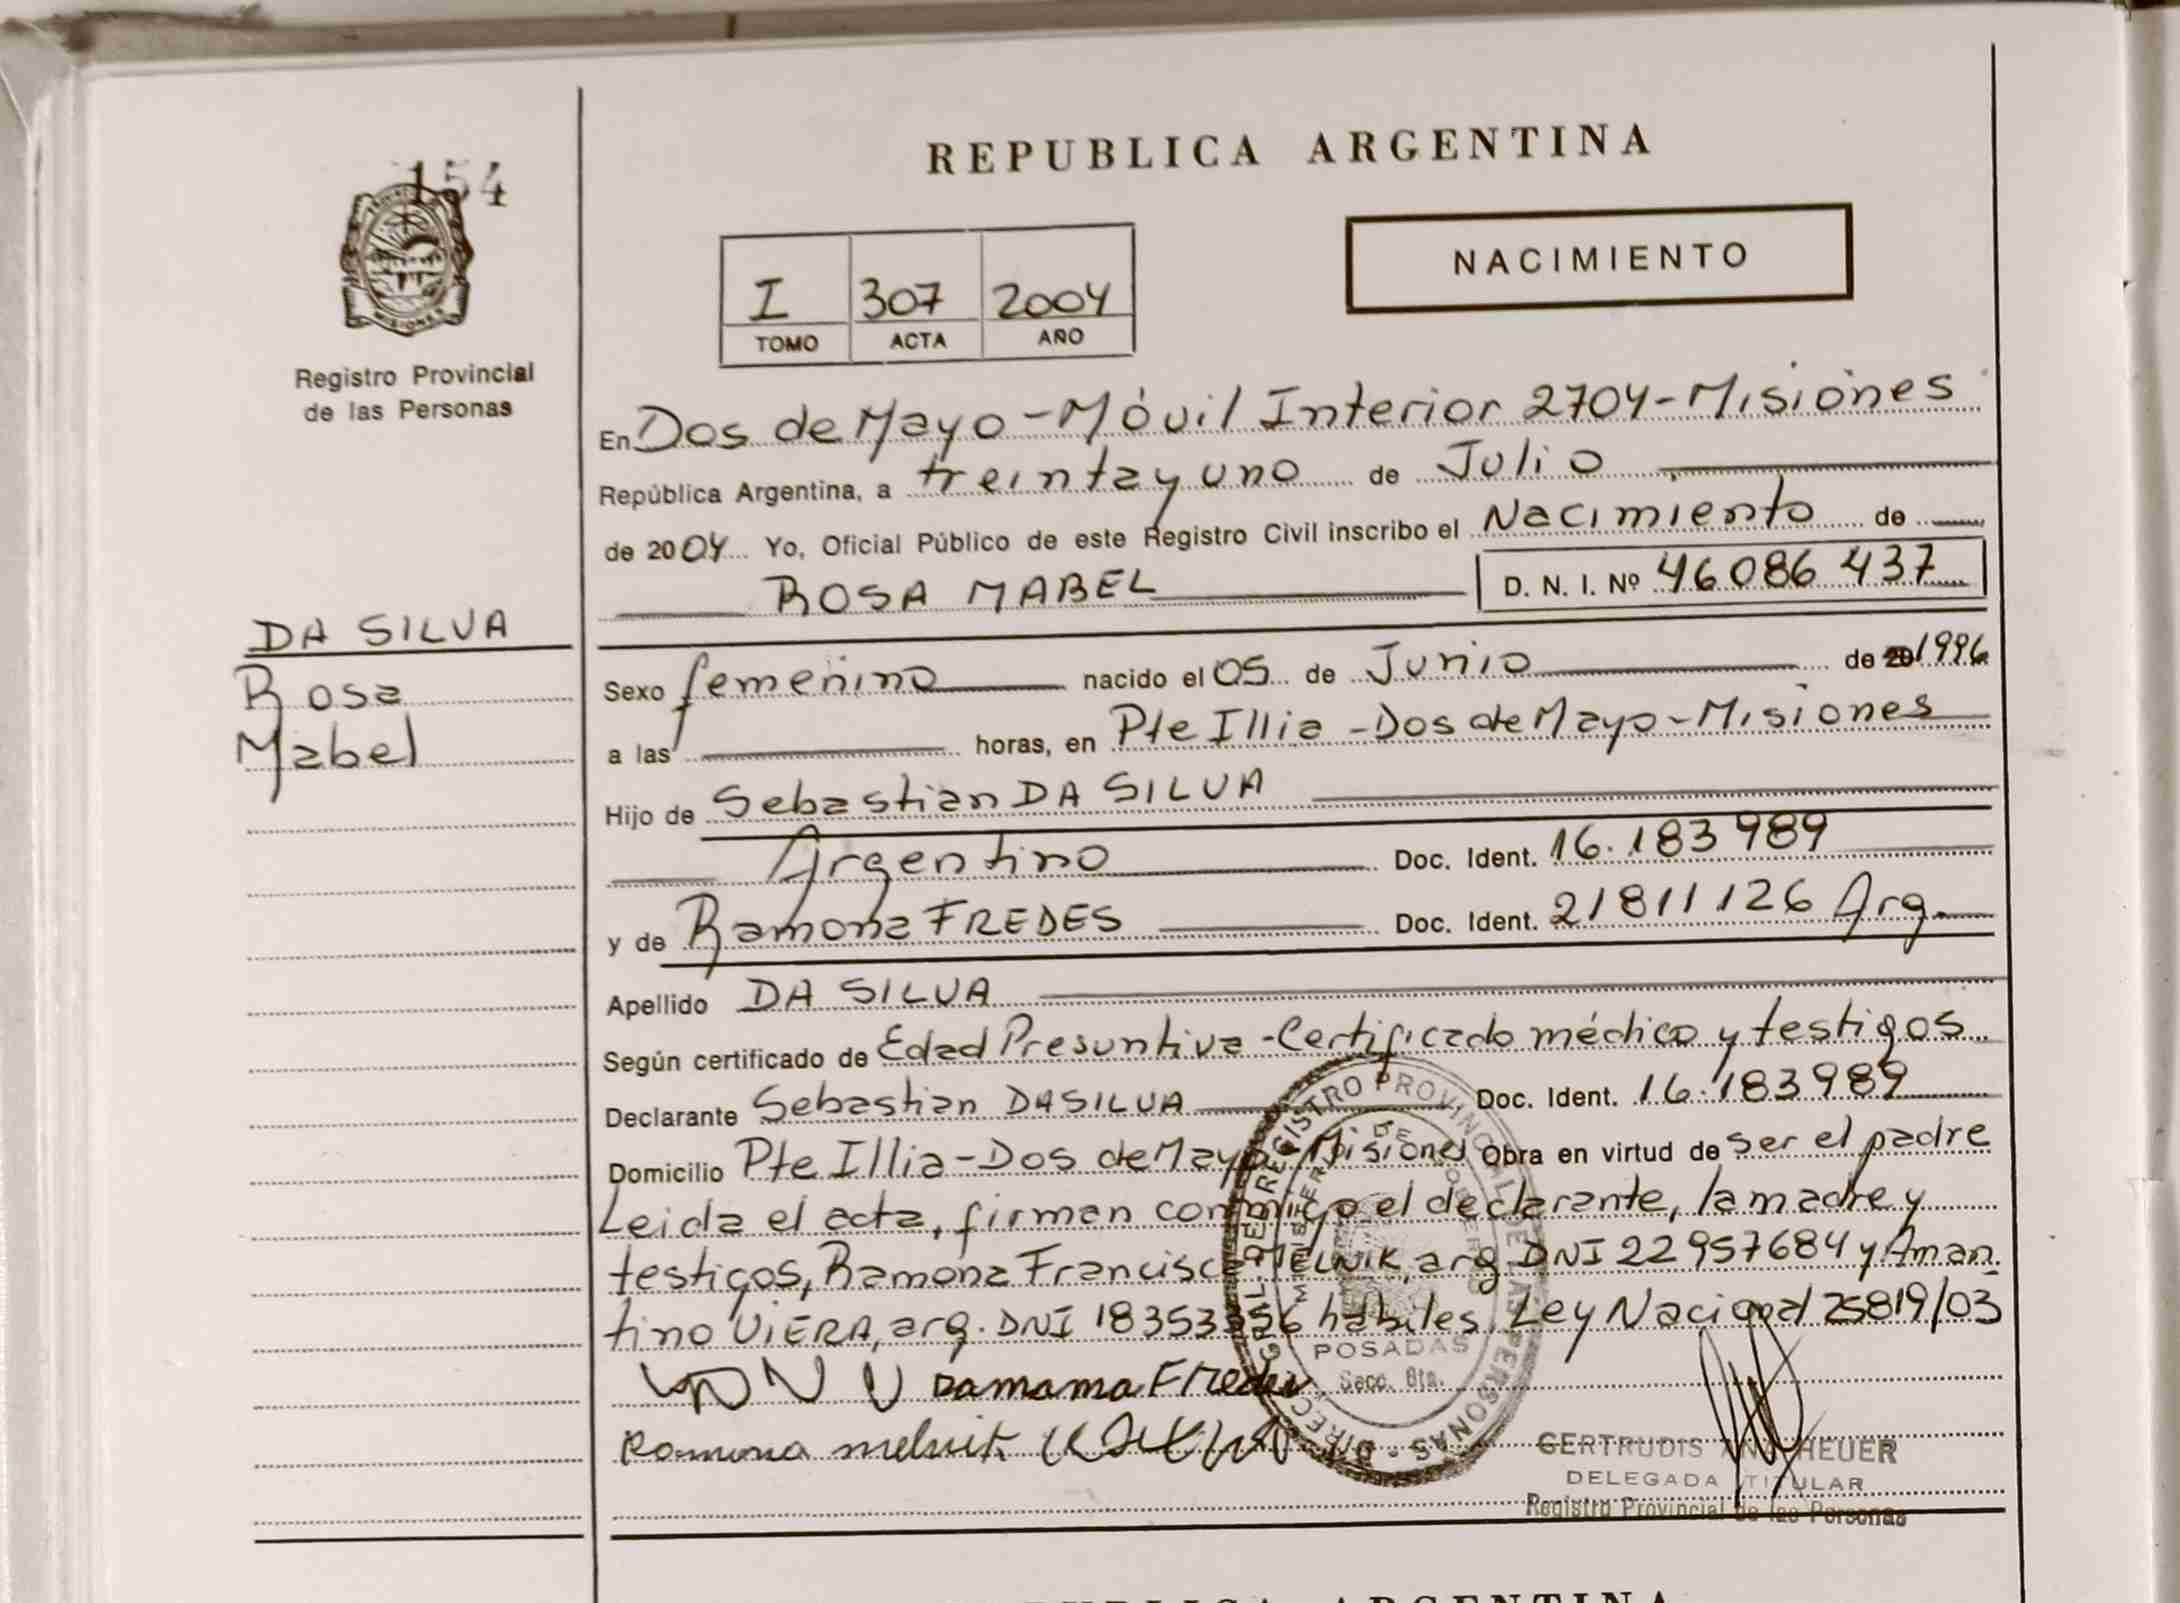 154
MISIONES
Registro Provincial
de las Personas
DA SILVA
Rosa
Mabel
REPUBLICA ARGENTINA
NACIMIENTO
I 307 2004
TOMO ACTA AÑO
En Dos de Mayo - Móvil Interior 2704 - Misiones
República Argentina, a treinta y uno de Julio
de 2004 Yo, Oficial Público de este Registro Civil inscribo el Nacimiento de
ROSA MABEL D. N. I. Nº 46 086 437
Sexo femenino nacido el 05 de Junio de 20 1996
a las horas, en Pte Illia - Dos de Mayo - Misiones
Hijo de Sebastian DA SILVA
Argentino Doc. Ident. 16.183 989
y de Ramona FREDES Doc. Ident. 21811126 Arg.
Apellido DA SILVA
Según certificado de Edad Presuntiva - Certificado médico y testigos
Declarante Sebastian DA SILVA Doc. Ident. 16.183989
Domicilio Pte Illia - Dos de Mayo Misiones Obra en virtud de ser el padre
Leida el acta, firman conmigo el declarante, la madre y
testigos, Ramona Francisca MELNIK, arg. DNI 22957684 y Aman
tino VIERA, arg. DNI habiles. Ley Nacional 25819/03
Ramona Fredes
Ramona melnik
DIRECC GRAL. DE REGISTRO PROVINCIAL DE LAS PERSONAS
MINISTERIO DE GOBIERNO
POSADAS
Secc. 8ta.
GERTRUDIS ANA HEUER
DELEGADA TITULAR
Registro Provincial de las Personas
REPUBLICA ARGENTINA